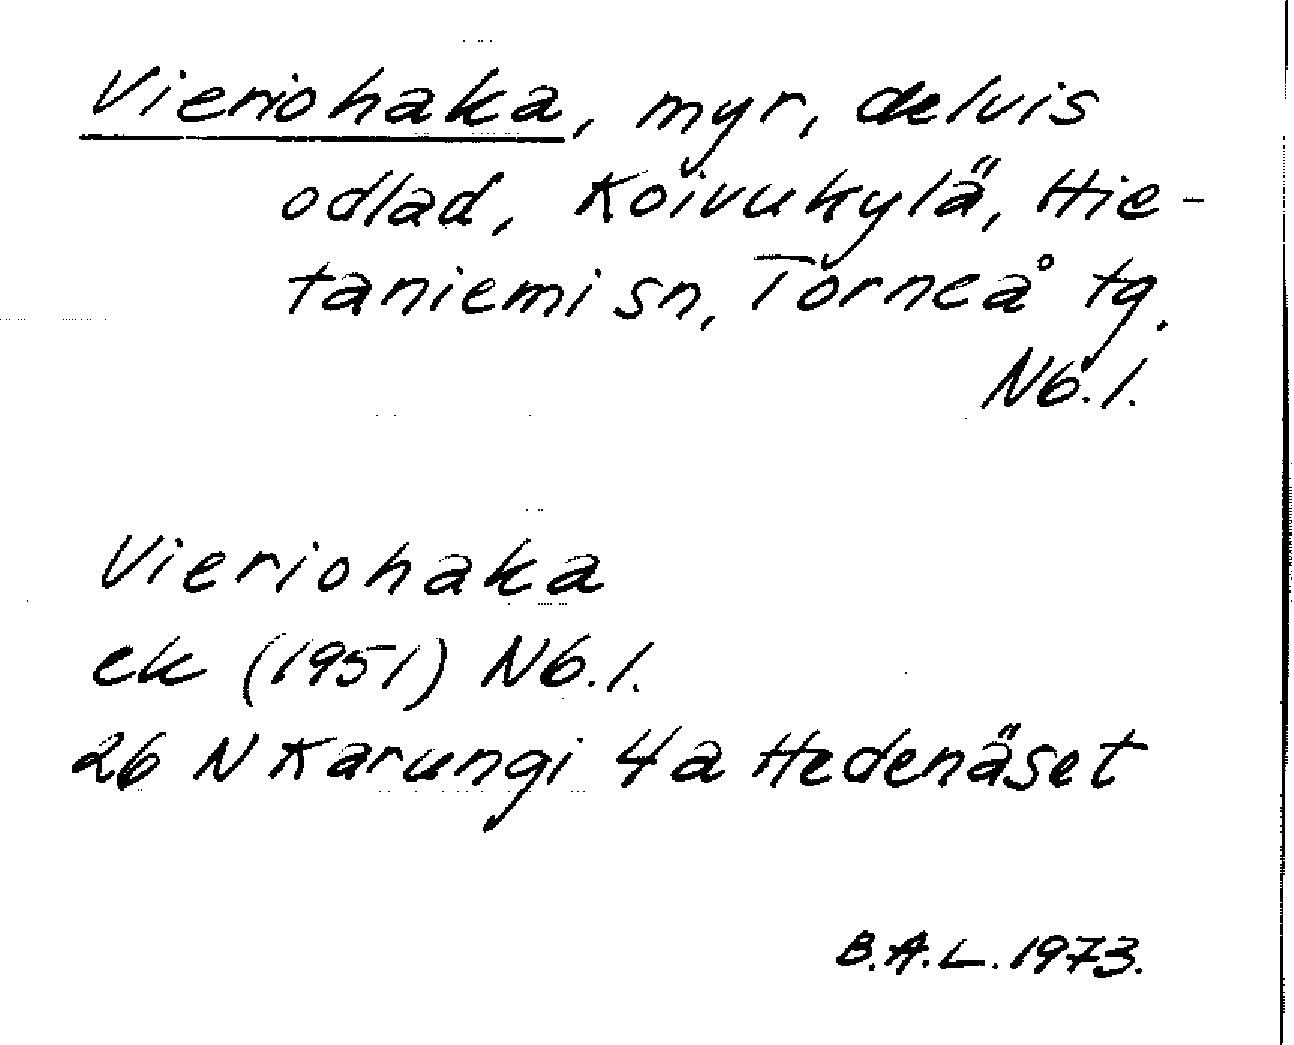 Vieriohaka, myr, delvis
odlad, Koivukylä, Hie-
taniemi sn, Torneå tg.
Nb. l.
Vieriohaka
ek (1951) Nb. l.
26 N Karungi 4a Hedenäset
B.A.L. 1973.